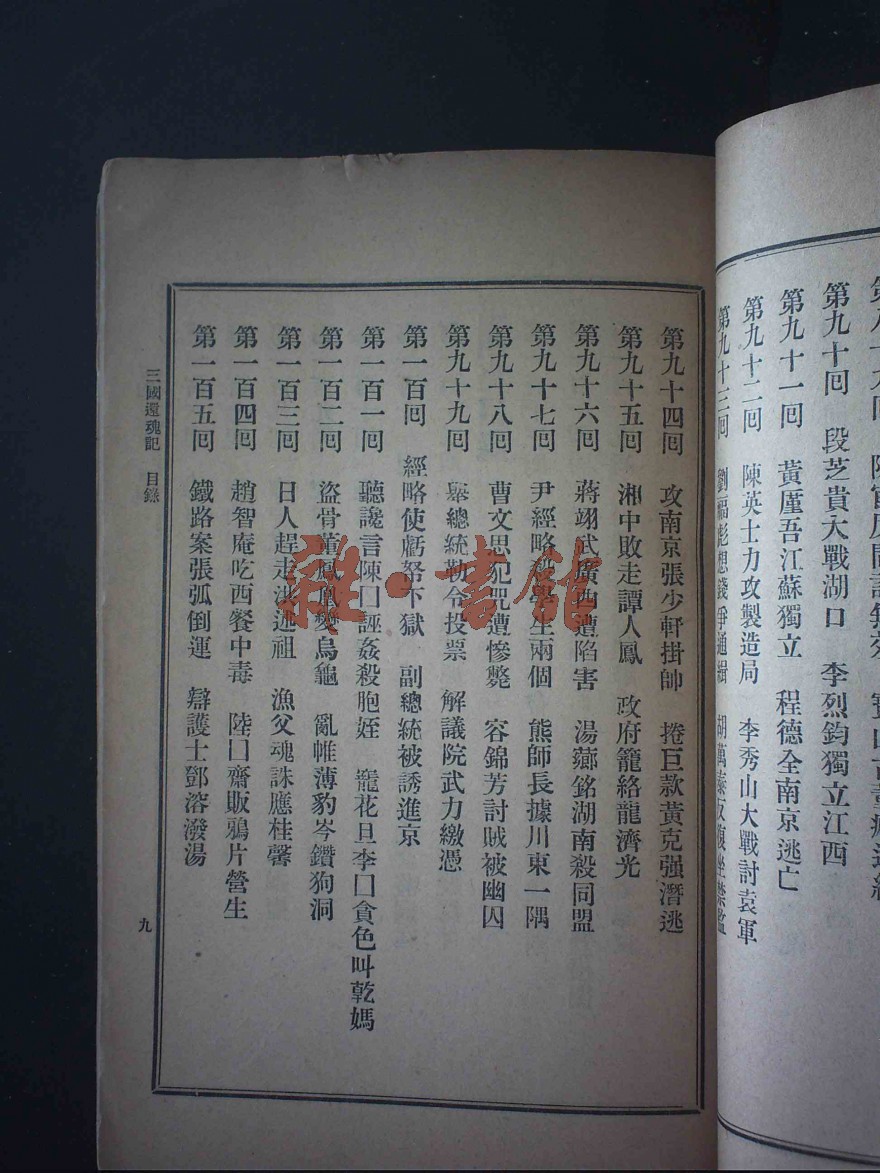 第九十回　段芝貴大戰湖口　李烈鈞獨立江西
第九十一回　黃厪吾江蘇獨立　程德全南京逃亡
第九十二回　陳英士力攻製造局　李秀山大戰討袁軍
第九十三回　劉福彪想錢爭通緝
第九十四回　攻南京張少軒掛帥　捲巨款黃克强潛逃
第九十五回　湘中敗走譚人鳳　政府籠絡龍濟光
第九十六回　蔣翊武廣西遭陷害　湯薌銘湖南殺同盟
第九十七回　尹經略殺學生兩個　熊師長據川東一隅
第九十八回　曹文思犯罪遭慘斃　容錦芳討賊被幽囚
第九十九回　舉總統勒令投票　解議院武力繳憑
第一百回　經略使虧帑下獄　副總統被誘進京
第一百一回　聽讒言陳囗誣姦殺胞姪　寵花旦李囗貪色叫乾媽
第一百二回　盜骨董鳳凰變烏龜　亂帷薄豹岑鑽狗洞
第一百三回　日人趕走洪述祖　漁父魂誅應桂馨
第一百四回　趙智庵吃西餐中毒　陸囗齋販鴉片營生
第一百五回　鐵路案張弧倒運　辯護士鄧溶潑湯
三國還魂記　目錄
九
雜·書館